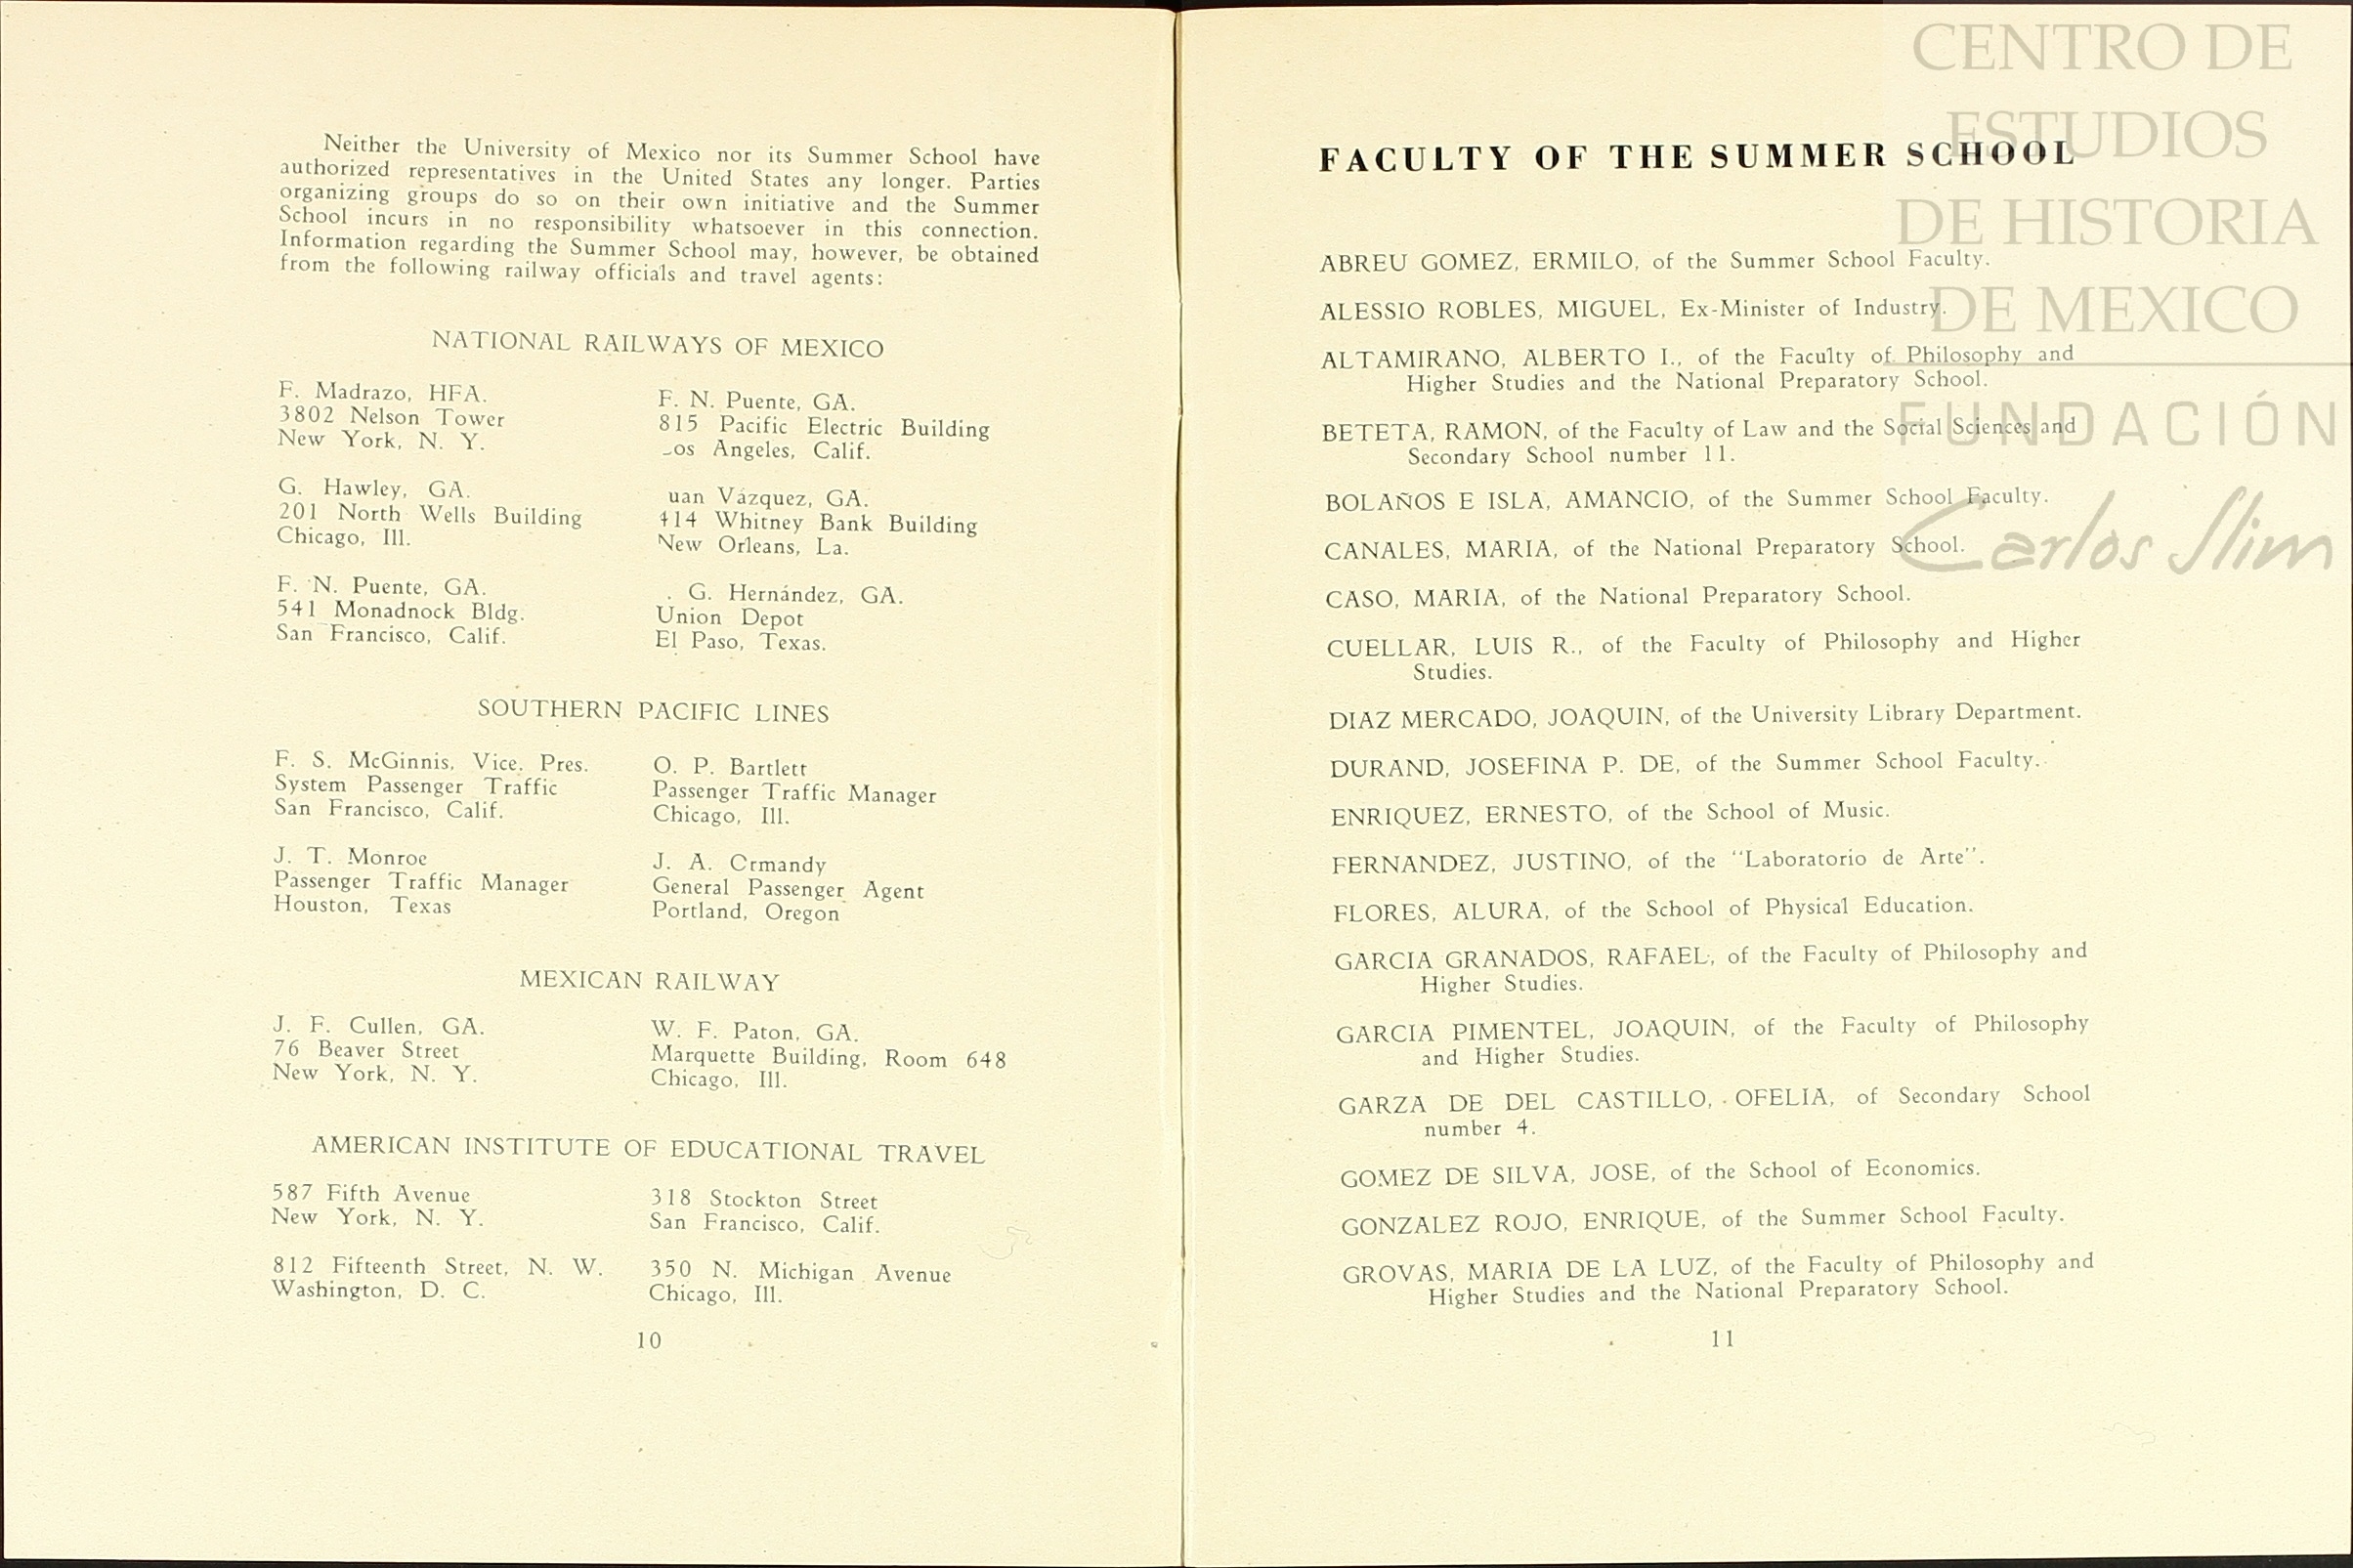 Neither the University of Mexico nor its Summer School have
authorized representatives in the United States any longer. Parties
organizing groups do so on their own initiative and the Summer
School incurs in no responsibility whatsoever in this connection.
Information regarding the Summer School may, however, be obtained
from the following railway officials and travel agents:
NATIONAL RAILWAYS OF MEXICO
F. Madrazo, HFA.
3802 Nelson Tower
New York, N. Y.
F. N. Puente, GA.
815 Pacific Electric Building
os Angeles, Calif.
G. Hawley, GA.
201 North Wells Building
Chicago, Ill.
uan Vázquez, GA.
414 Whitney Bank Building
New Orleans, La.
F. N. Puente, GA.
541 Monadnock Bldg.
San Francisco, Calif.
. G. Hernández, GA.
Union Depot
El Paso, Texas.
SOUTHERN PACIFIC LINES
F. S. McGinnis, Vice. Pres.
System Passenger Traffic
San Francisco, Calif.
O. P. Bartlett
Passenger Traffic Manager
Chicago, Ill.
J. T. Monroe
Passenger Traffic Manager
Houston, Texas
J. A. Ormandy
General Passenger Agent
Portland, Oregon
MEXICAN RAILWAY
J. F. Cullen, GA.
76 Beaver Street
New York, N. Y.
W. F. Paton, GA.
Marquette Building, Room 648
Chicago, Ill.
AMERICAN INSTITUTE OF EDUCATIONAL TRAVEL
587 Fifth Avenue
New York, N. Y.
318 Stockton Street
San Francisco, Calif.
812 Fifteenth Street, N. W.
Washington, D. C.
350 N. Michigan Avenue
Chicago, Ill.
10
FACULTY OF THE SUMMER SCHOOL
ABREU GOMEZ, ERMILO, of the Summer School Faculty.
ALESSIO ROBLES, MIGUEL, Ex-Minister of Industry.
ALTAMIRANO, ALBERTO I., of the Faculty of Philosophy and
Higher Studies and the National Preparatory School.
BETETA, RAMON, of the Faculty of Law and the Social Sciences and
Secondary School number 11.
BOLAÑOS E ISLA, AMANCIO, of the Summer School Faculty.
CANALES, MARIA, of the National Preparatory School.
CASO, MARIA, of the National Preparatory School.
CUELLAR, LUIS R., of the Faculty of Philosophy and Higher
Studies.
DIAZ MERCADO, JOAQUIN, of the University Library Department.
DURAND, JOSEFINA P. DE, of the Summer School Faculty.
ENRIQUEZ, ERNESTO, of the School of Music.
FERNANDEZ, JUSTINO, of the "Laboratorio de Arte".
FLORES, ALURA, of the School of Physical Education.
GARCIA GRANADOS, RAFAEL, of the Faculty of Philosophy and
Higher Studies.
GARCIA PIMENTEL, JOAQUIN, of the Faculty of Philosophy
and Higher Studies.
GARZA DE DEL CASTILLO, OFELIA, of Secondary School
number 4.
GOMEZ DE SILVA, JOSE, of the School of Economics.
GONZALEZ ROJO, ENRIQUE, of the Summer School Faculty.
GROVAS, MARIA DE LA LUZ, of the Faculty of Philosophy and
Higher Studies and the National Preparatory School.
11
CENTRO DE
ESTUDIOS
DE HISTORIA
DE MEXICO
FUNDACIÓN
Carlos Slim